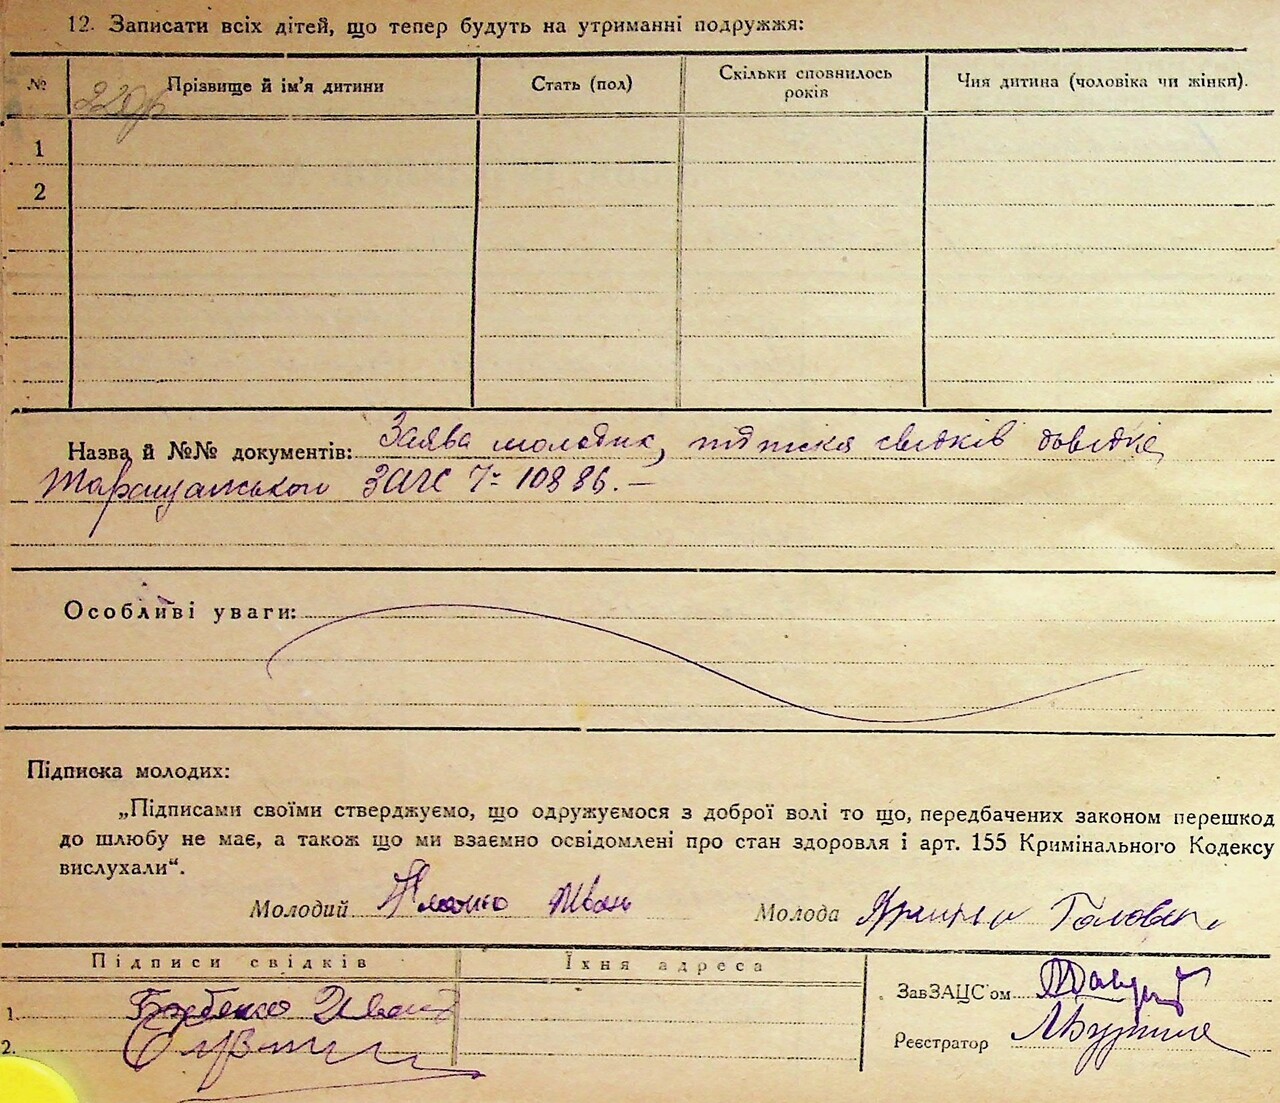 12. Записати всіх дітей, що тепер будуть на утриманні подружжя:
№ Прізвище й ім'я дитини Стать (пол) Скільки сповнилось років Чия дитина (чоловіка чи жінки).
1
2
Назва й №№ документів: Заява молодих, підписка свідків довідка
Таращанського ЗАГС 10886. —
Особливі уваги:
Підписка молодих:
„Підписами своїми стверджуємо, що одружуємося з доброї волі то що, передбачених законом перешкод
до шлюбу не має, а також що ми взаємно освідомлені про стан здоровля і арт. 155 Кримінального Кодексу
вислухали“.
Молодий Іван Молода
Підписи свідків Їхня адреса
ЗавЗАЦС'ом
1. Іван
Реєстратор
2.